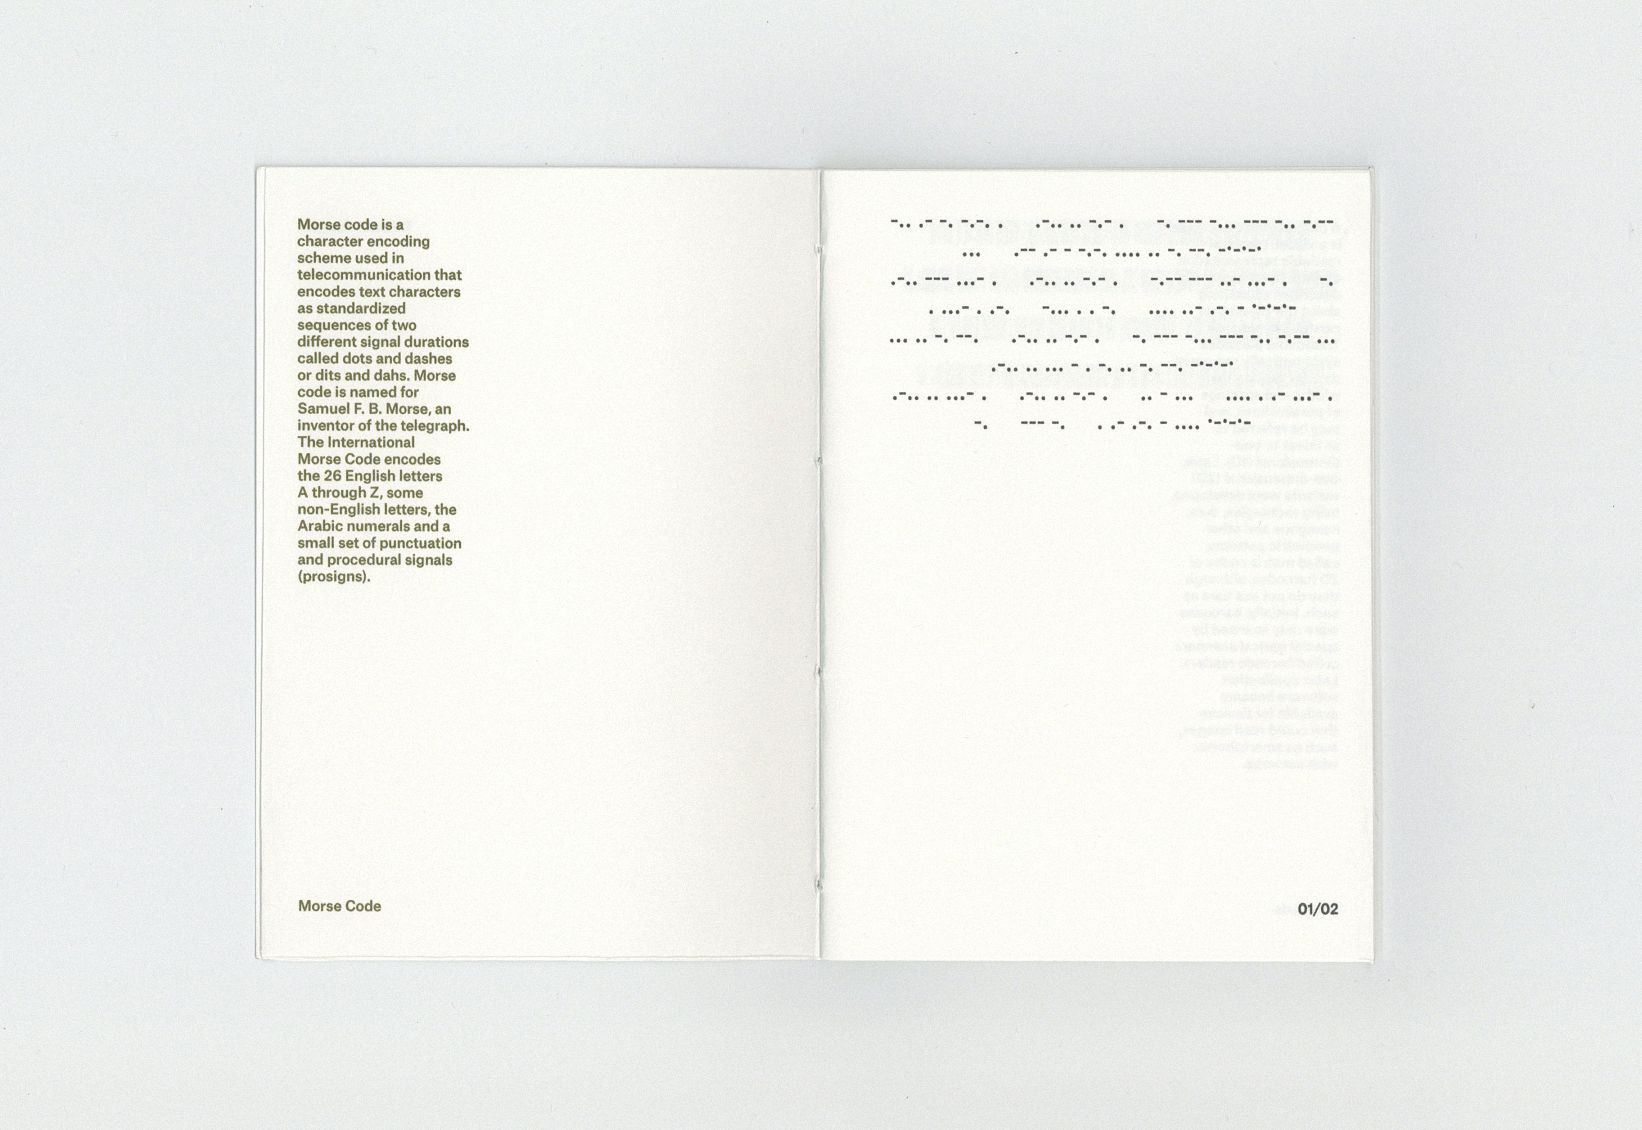 Morse code is a
character encoding
scheme used in
telecommunication that
encodes text characters
as standardized
sequences of two
different signal durations
called dots and dashes
or dits and dahs. Morse
code is named for
Samuel F. B. Morse, an
inventor of the telegraph.
The International
Morse Code encodes
the 26 English letters
A through Z, some
non-English letters, the
Arabic numerals and a
small set of punctuation
and procedural signals
(prosigns).
Morse Code
-.. .- -. -.-. . .-.. .. -.- . -. --- -... --- -.. -.--
... .-- .- - -.-. .... .. -. --. .-.-.-
.-.. --- ...- . .-.. .. -.- . -.-- --- ..- ...- . -.
. ...- . .-. -... . . -. .... ..- .-. - .-.-.-
... .. -. --. .-.. .. -.- . -. --- -... --- -.. -.-- ...
.-.. .. ... - . -. .. -. --. .-.-.-
.-.. .. ...- . .-.. .. -.- . .. - ... .... . .- ...- .
-. --- -. . .- .-. - .... .-.-.-
01/02